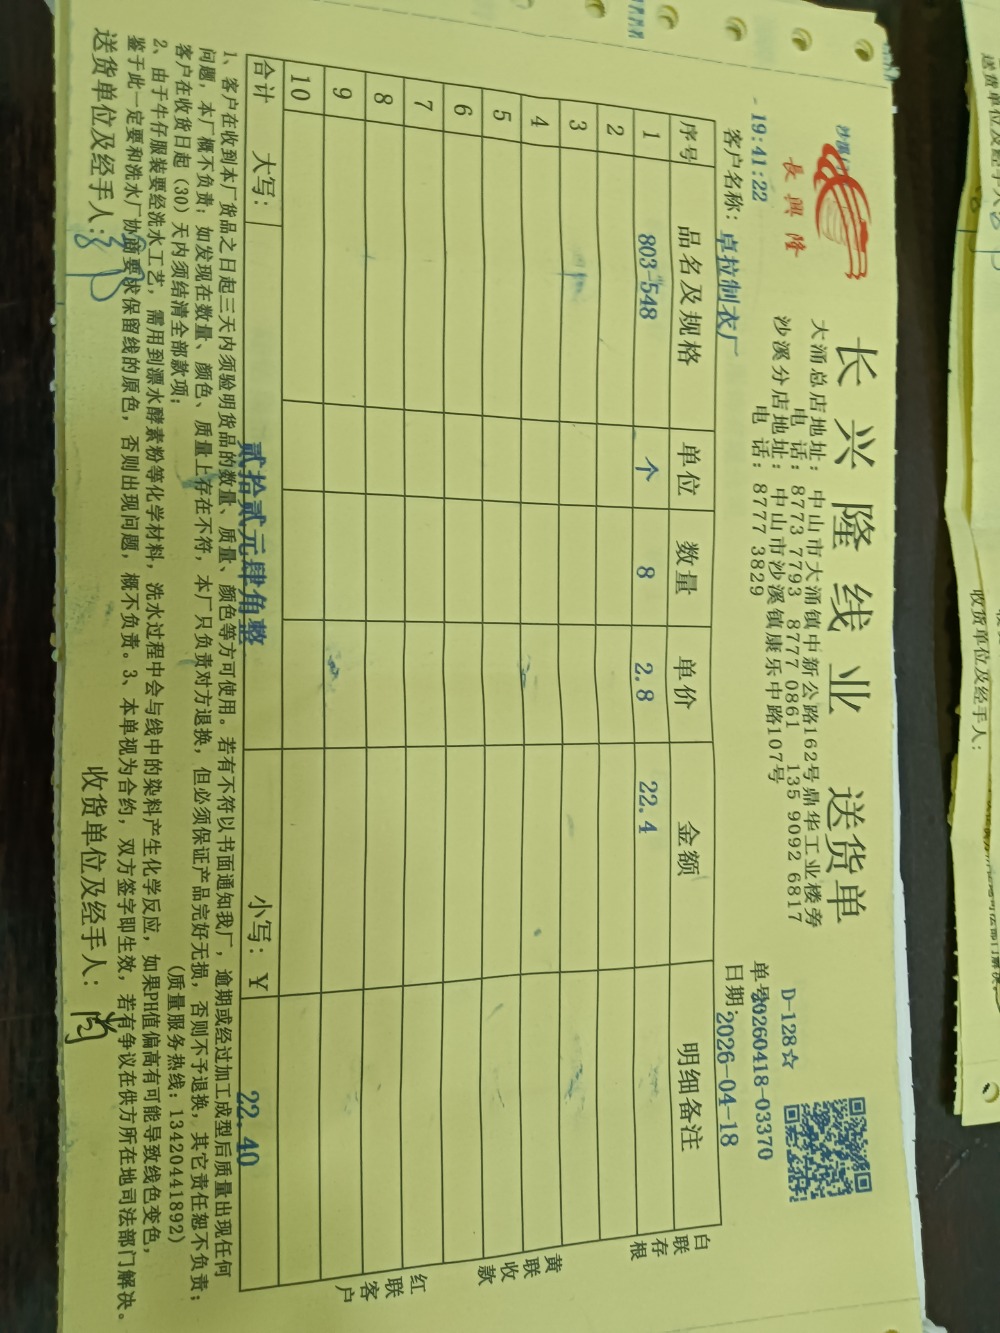 長興隆
长兴隆线业 送货单
大涌总店地址: 中山市大涌镇中新公路162号鼎华工业楼旁
电 话: 8773 7793 8777 0861 135 9092 6817
沙溪分店地址: 中山市沙溪镇康乐中路107号
电 话: 8777 3829
D-128☆
19:41:22
单号20260418-03370
客户名称: 卓拉制衣厂
日期:2026-04-18
序号 品名及规格 单位 数量 单价 金额 明细备注
1 803-548 个 8 2.8 22.4
2
3
4
5
6
7
8
9
10
合计 大写: 贰拾贰元肆角整 小写: ¥ 22.40
白联存根
黄联收款
红联客户
1、客户在收到本厂货品之日起三天内须验明货品的数量、质量、颜色等方可使用。若有不符以书面通知我厂, 逾期或经过加工成型后质量出现任何
问题, 本厂概不负责; 如发现在数量、颜色、质量上存在不符, 本厂只负责对方退换, 但必须保证产品完好无损, 否则不予退换, 其它责任恕不负责;
客户在收货日起 (30) 天内须结清全部款项; (质量服务热线: 13420441892)
2、由于牛仔服装要经洗水工艺, 需用到漂水酵素粉等化学材料, 洗水过程中会与线中的染料产生化学反应, 如果PH值偏高有可能导致线色变色,
鉴于此一定要和洗水厂协商要求保留线的原色, 否则出现问题, 概不负责。3、本单视为合约, 双方签字即生效, 若有争议在供方所在地司法部门解决。
送货单位及经手人: 收货单位及经手人:
送货单位及经手人
收货单位及经手人: